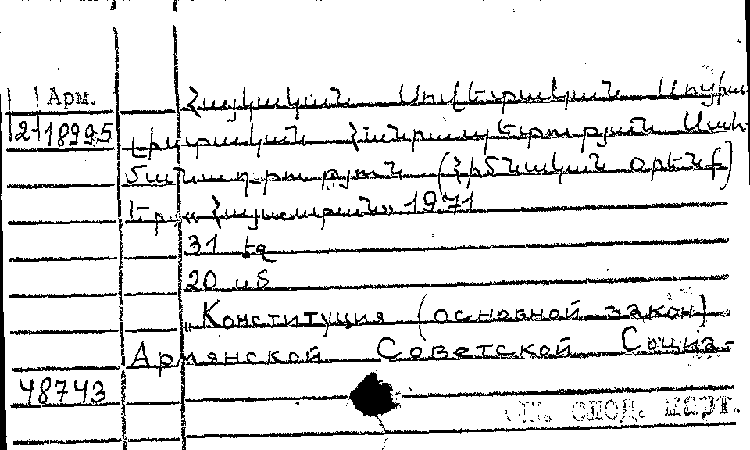 Арм.
Հայկական Սովետական Սոցիա-
2-18995
լիստական Հանրապետության Սահ-
մանադրություն (հիմնական օրենք)
Եր., «Հայաստան» 1971
31 էջ
20 սմ
„Конституция (основной закон)
Армянской Советской Социа-
48743